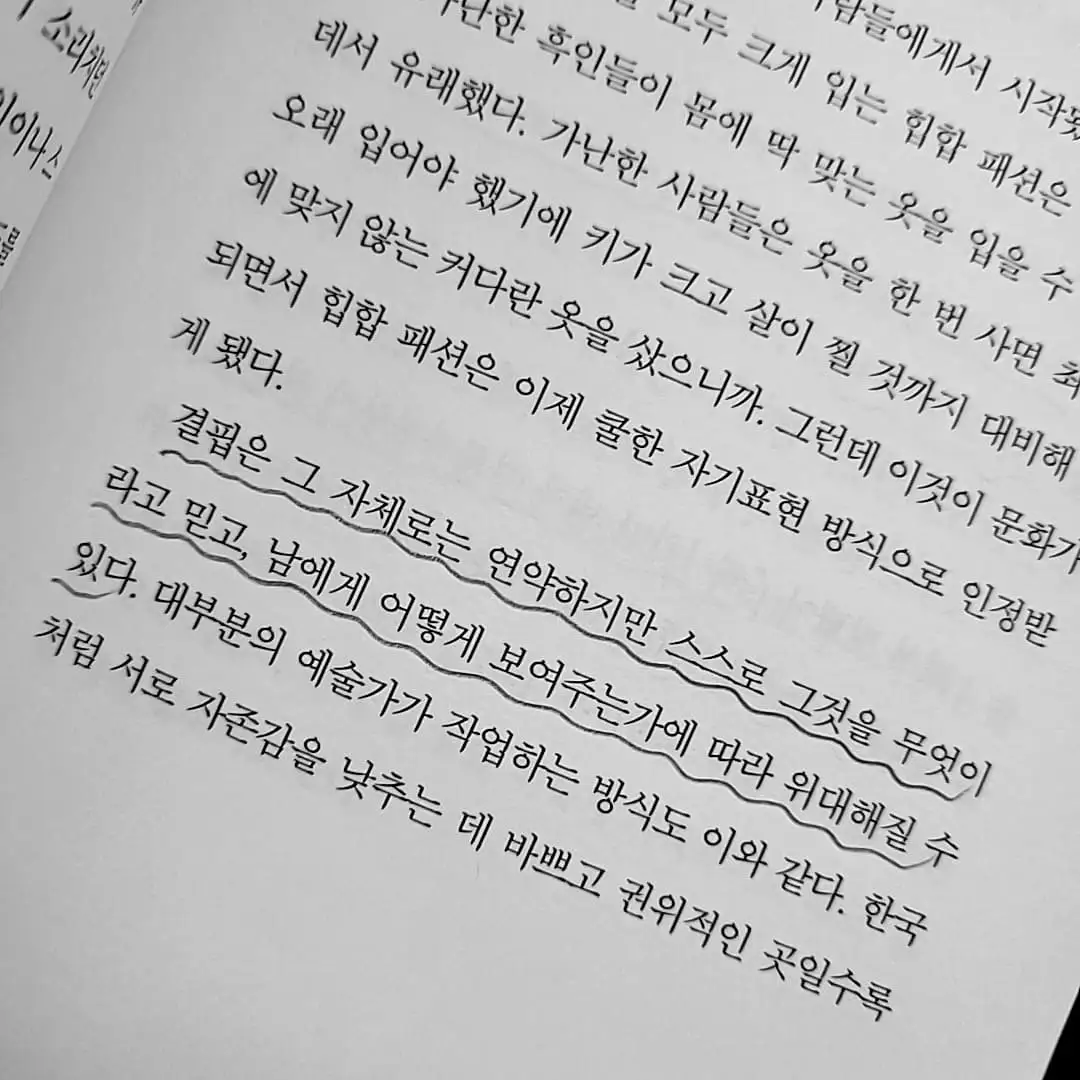 소리치던
이이나스
람들에게서 시작됐
모두 크게 입는 힙합 패션은
가난한 흑인들이 몸에 딱 맞는 옷을 입을 수
데서 유래했다. 가난한 사람들은 옷을 한 번 사면 최
오래 입어야 했기에 키가 크고 살이 찔 것까지 대비해
에 맞지 않는 커다란 옷을 샀으니까. 그런데 이것이 문화가
되면서 힙합 패션은 이제 쿨한 자기표현 방식으로 인정받
게 됐다.
결핍은 그 자체로는 연약하지만 스스로 그것을 무엇이
라고 믿고, 남에게 어떻게 보여주는가에 따라 위대해질 수
있다. 대부분의 예술가가 작업하는 방식도 이와 같다. 한국
처럼 서로 자존감을 낮추는 데 바쁘고 권위적인 곳일수록